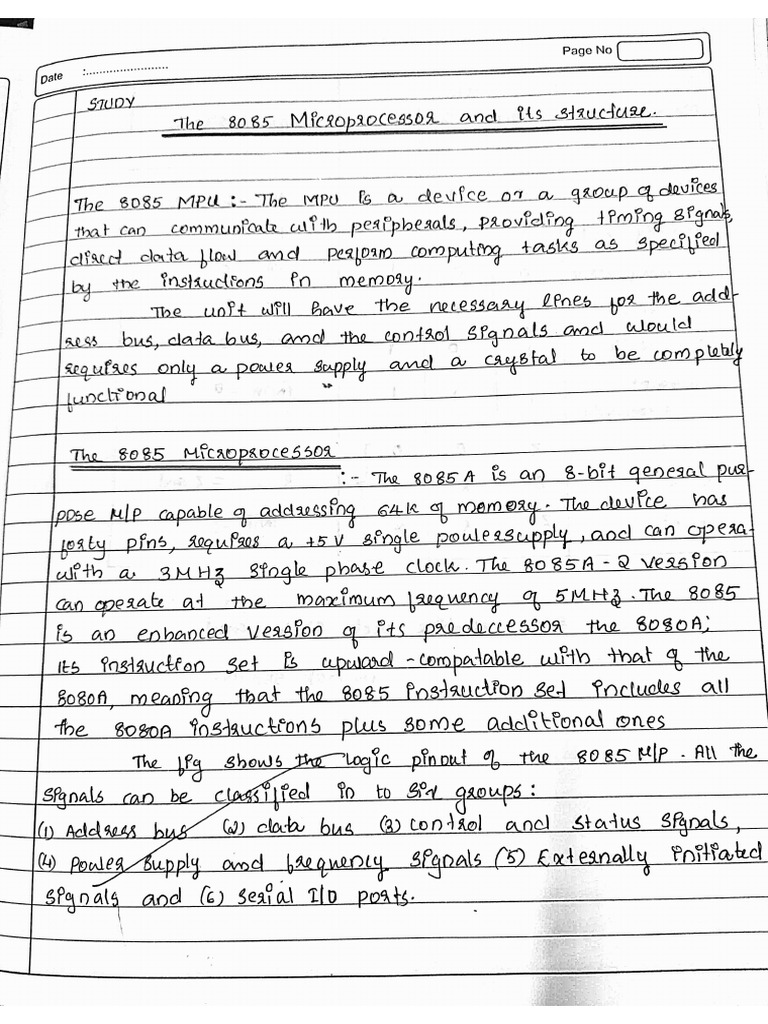 Page No
Date :........................
STUDY
The 8085 Microprocessor and its structure.
The 8085 MPU :- The MPU is a device or a group of devices
that can communicate with peripherals, providing timing signals,
direct data flow and perform computing tasks as specified
by the instructions in memory.
The unit will have the necessary lines for the add-
ress bus, data bus, and the control signals and would
requires only a power supply and a crystal to be completely
functional
The 8085 Microprocessor
:- The 8085 A is an 8-bit general pur-
pose M/P capable of addressing 64K of memory. The device has
forty pins, requires a +5V single powersupply, and can opera-
with a 3MHz single phase clock. The 8085A-2 version
can operate at the maximum frequency of 5MHz. The 8085
is an enhanced version of its predeccessor the 8080A;
its instruction set is upward-compatable with that of the
8080A, meaning that the 8085 instruction set includes all
the 8080A instructions plus some additional ones
The fig shows the logic pinout of the 8085 M/P. All the
signals can be classified in to six groups:
(1) Address bus (2) data bus (3) control and status signals,
(4) Power supply and frequency signals (5) Externally initiated
signals and (6) serial I/O ports.